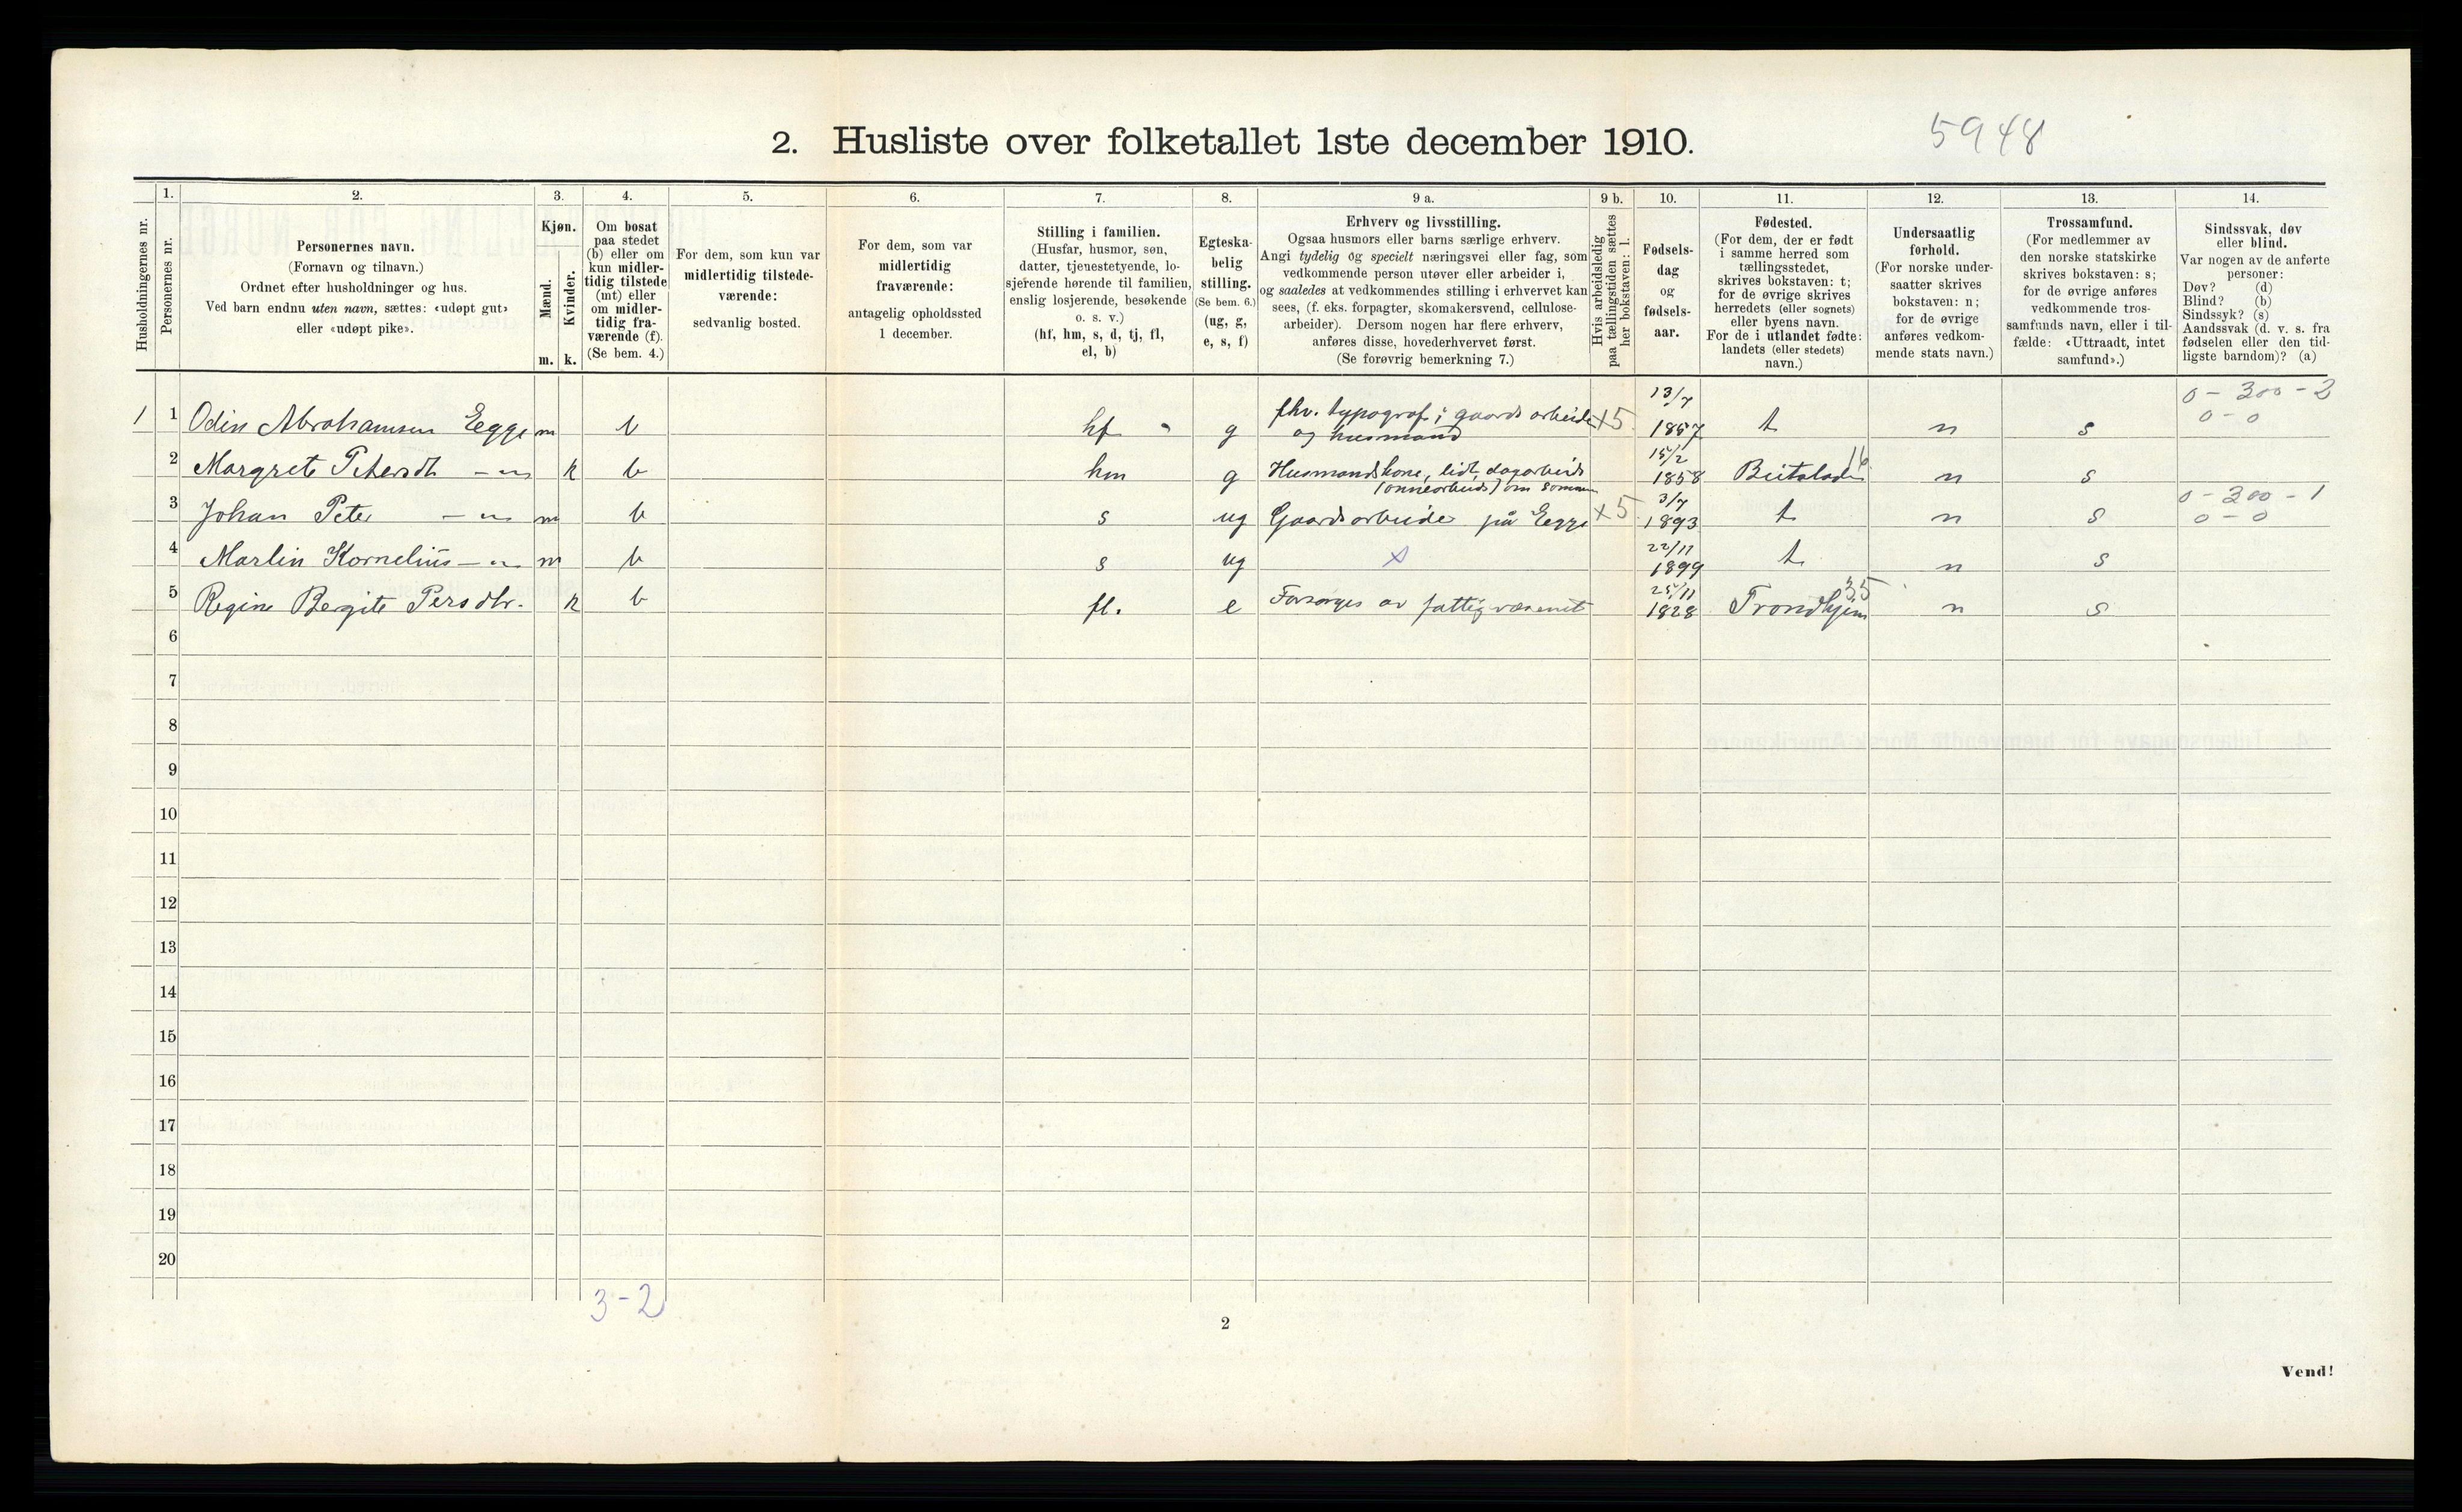 5948
2. Husliste over folketallet 1ste december 1910.
Husholdningernes nr.
1.
Personernes nr.
2.
Personernes navn.
(Fornavn og tilnavn.)
Ordnet efter husholdninger og hus.
Ved barn endnu uten navn, sættes: «udøpt gut»
eller «udøpt pike».
3.
Kjøn.
Mænd.
Kvinder.
m. k.
4.
Om bosat
paa stedet
(b) eller om
kun midler-
tidig tilstede
(mt) eller
om midler-
tidig fra-
værende (f).
(Se bem. 4.)
5.
For dem, som kun var
midlertidig tilstede-
værende:
sedvanlig bosted.
6.
For dem, som var
midlertidig
fraværende:
antagelig opholdssted
1 december.
7.
Stilling i familien.
(Husfar, husmor, søn,
datter, tjenestetyende, lo-
sjerende hørende til familien,
enslig losjerende, besøkende
o. s. v.)
(hf, hm, s, d, tj, fl,
el, b)
8.
Egteska-
belig
stilling.
(Se bem. 6.)
(ug, g,
e, s, f)
9 a.
Erhverv og livsstilling.
Ogsaa husmors eller barns særlige erhverv.
Angi tydelig og specielt næringsvei eller fag, som
vedkommende person utøver eller arbeider i,
og saaledes at vedkommendes stilling i erhvervet kan
sees, (f. eks. forpagter, skomakersvend, cellulose-
arbeider). Dersom nogen har flere erhverv,
anføres disse, hovederhvervet først.
(Se forøvrig bemerkning 7.)
9 b.
Hvis arbeidsledig
paa tællingstiden sættes
her bokstaven: l.
10.
Fødsels-
dag
og
fødsels-
aar.
11.
Fødested.
(For dem, der er født
i samme herred som
tællingsstedet,
skrives bokstaven: t;
for de øvrige skrives
herredets (eller sognets)
eller byens navn.
For de i utlandet fødte:
landets (eller stedets)
navn.)
12.
Undersaatlig
forhold.
(For norske under-
saatter skrives
bokstaven: n;
for de øvrige
anføres vedkom-
mende stats navn.)
13.
Trossamfund.
(For medlemmer av
den norske statskirke
skrives bokstaven: s;
for de øvrige anføres
vedkommende tros-
samfunds navn, eller i til-
fælde: «Uttraadt, intet
samfund».)
14.
Sindssvak, døv
eller blind.
Var nogen av de anførte
personer:
Døv? (d)
Blind? (b)
Sindssyk? (s)
Aandssvak (d. v. s. fra
fødselen eller den tid-
ligste barndom)? (a)
13/7 0 - 300 - 2
1 1 Odin Abrahamsen Egge m b hf g fhv. typograf; gaardsarbeide x5 1857 t n s 0 - 0
og husmand
15/2 16
2 Margrete Petersdt — „ — k b hm g Husmandskone, lidt dagarbeide 1858 Beitstaden n s
(onnearbeide) om sommen
3/7 0 - 300 - 1
3 Johan Peter — „ — m b s ug Gaardsarbeide på Egge x5 1893 t n s 0 - 0
22/11
4 Marlin Kornelius — „ — m b s ug x 1899 t n s
25/11 35
5 Regine Bergite Persdtr. k b fl. e Forsørges av fattigvæsenet 1828 Trondhjem n s
6
7
8
9
10
11
12
13
14
15
16
17
18
19
20
3 - 2
2
Vend!